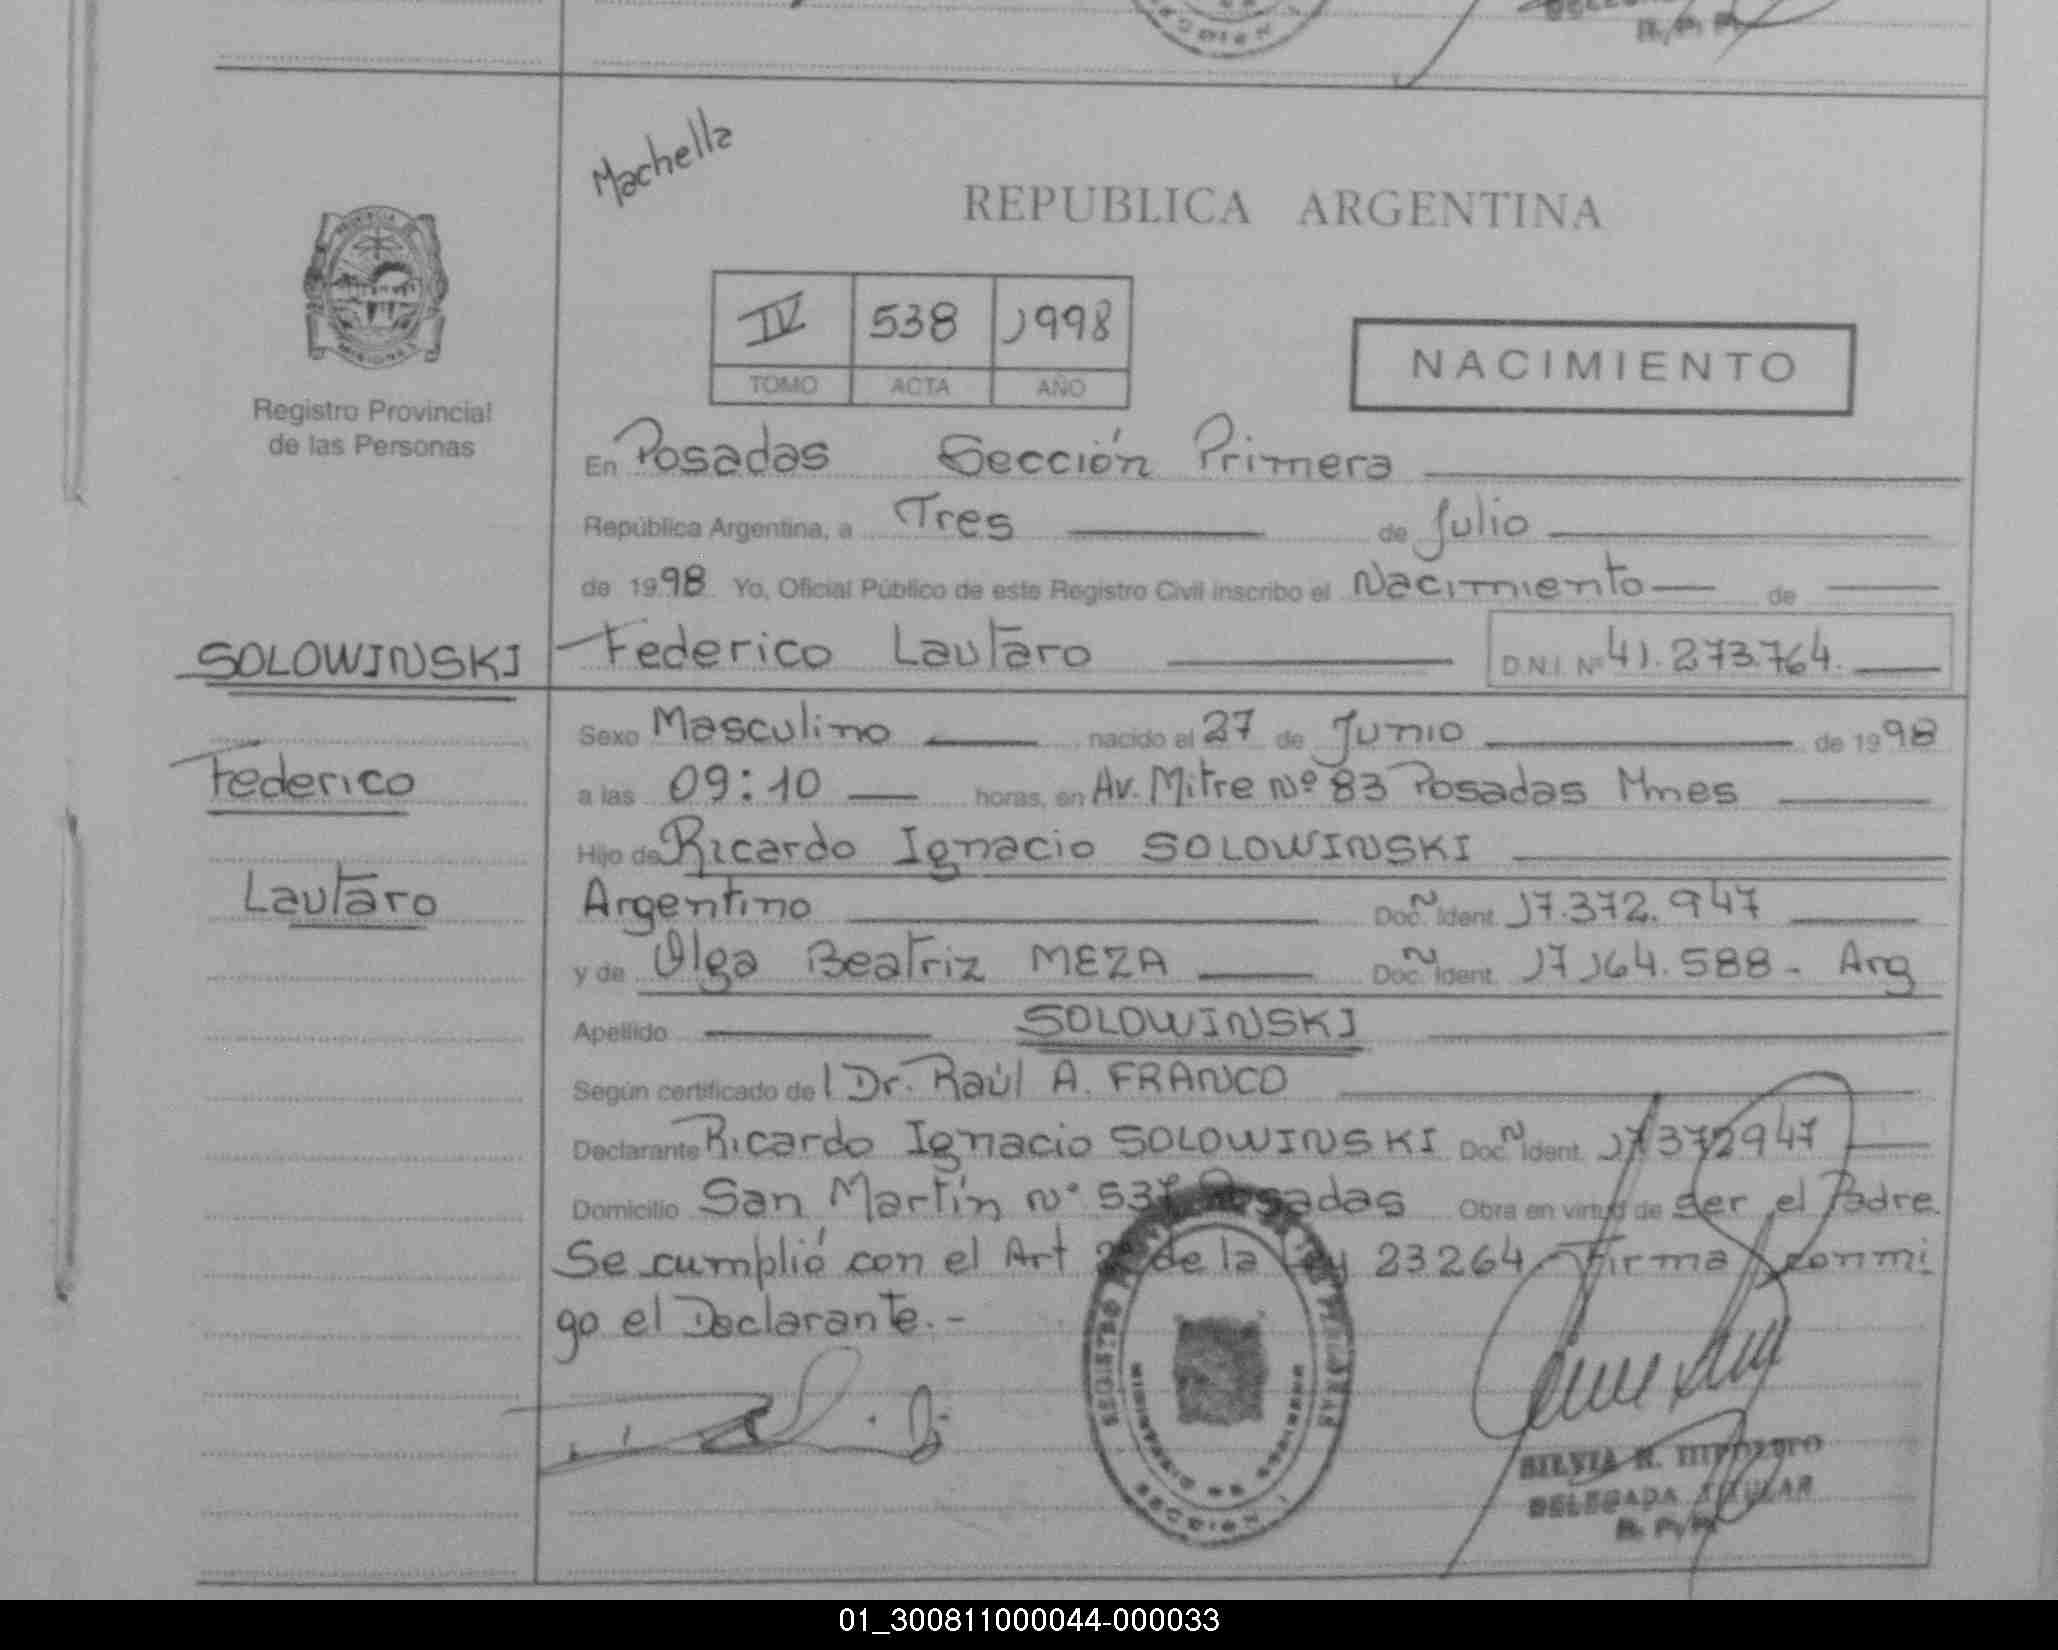 Machella
REPUBLICA ARGENTINA
PROVINCIA DE
MISIONES
IV 538 1998
TOMO ACTA AÑO
NACIMIENTO
Registro Provincial
de las Personas
En Posadas Sección Primera
República Argentina, a Tres de Julio
de 1998 Yo, Oficial Público de este Registro Civil inscribo el Nacimiento de
SOLOWINSKI Federico Lautaro D.N.I. Nº 41.273.764.
Sexo Masculino nacido el 27 de Junio de 1998
Federico
a las 09:10 horas, en Av. Mitre Nº 83 Posadas Mnes
Hijo de Ricardo Ignacio SOLOWINSKI
Lautaro
Argentino Doc. Ident. 17.372.947
y de Olga Beatriz MEZA Doc. Ident. 17.164.588 - Arg
Apellido SOLOWINSKI
Según certificado del Dr. Raúl A. FRANCO
Declarante Ricardo Ignacio SOLOWINSKI Doc. Ident. 17372947
Domicilio San Martín Nº 537 Posadas Obra en virtud de ser el Padre.
Se cumplió con el Art de la Ley 23264 Firma conmi
go el Declarante.-
REGISTRO PROVINCIAL DE LAS PERSONAS
MINISTERIO DE GOBIERNO
SECCION 1
SILVIA R. HIPOLITO
DELEGADA TITULAR
R. P. P.
01_300811000044-000033